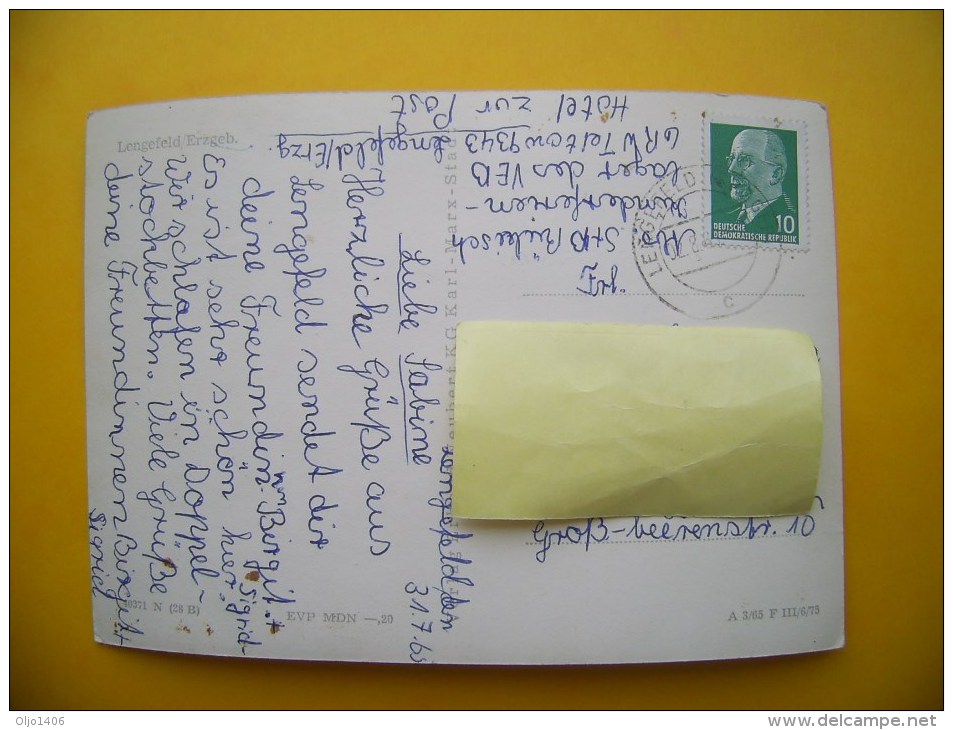 Lengefeld/Erzgeb.
Lengefeld, den
31.7.65
Liebe Sabine
Herzliche Grüße aus
Lengefeld sendet dir
deine Freundinnen Birgit. +
Sigrid.
Es ist sehr schön hier.
Wir schlafen in Doppel-
stockbetten. Viele Grüße
deine Freundinnen Birgit +
Sigrid
40371 N (28 B)
EVP MDN —,20
KG Karl-Marx-Stadt
A 3/65 F III/6/75
Kinderferien-
lager des VEB
GRW Teltow 9343
Lengefeld/Erzg.
Hotel zur Post
LENGEFELD
c
10
DEUTSCHE
DEMOKRATISCHE REPUBLIK
Oljo1406
www.delcampe.net